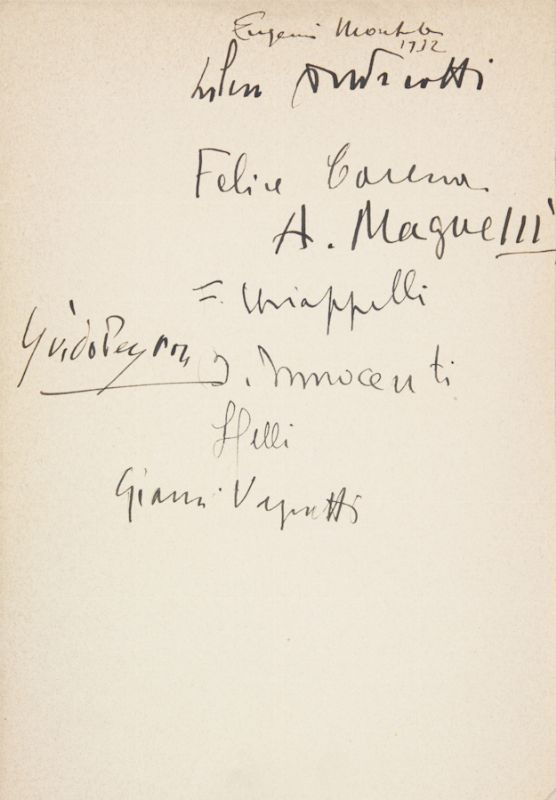 Eugenio Montale
1932
Libero Andreotti
Felice Carena
A. Magnelli
F. Chiappelli
Guido Peyron
B. Innocenti
Gianni Vagnetti